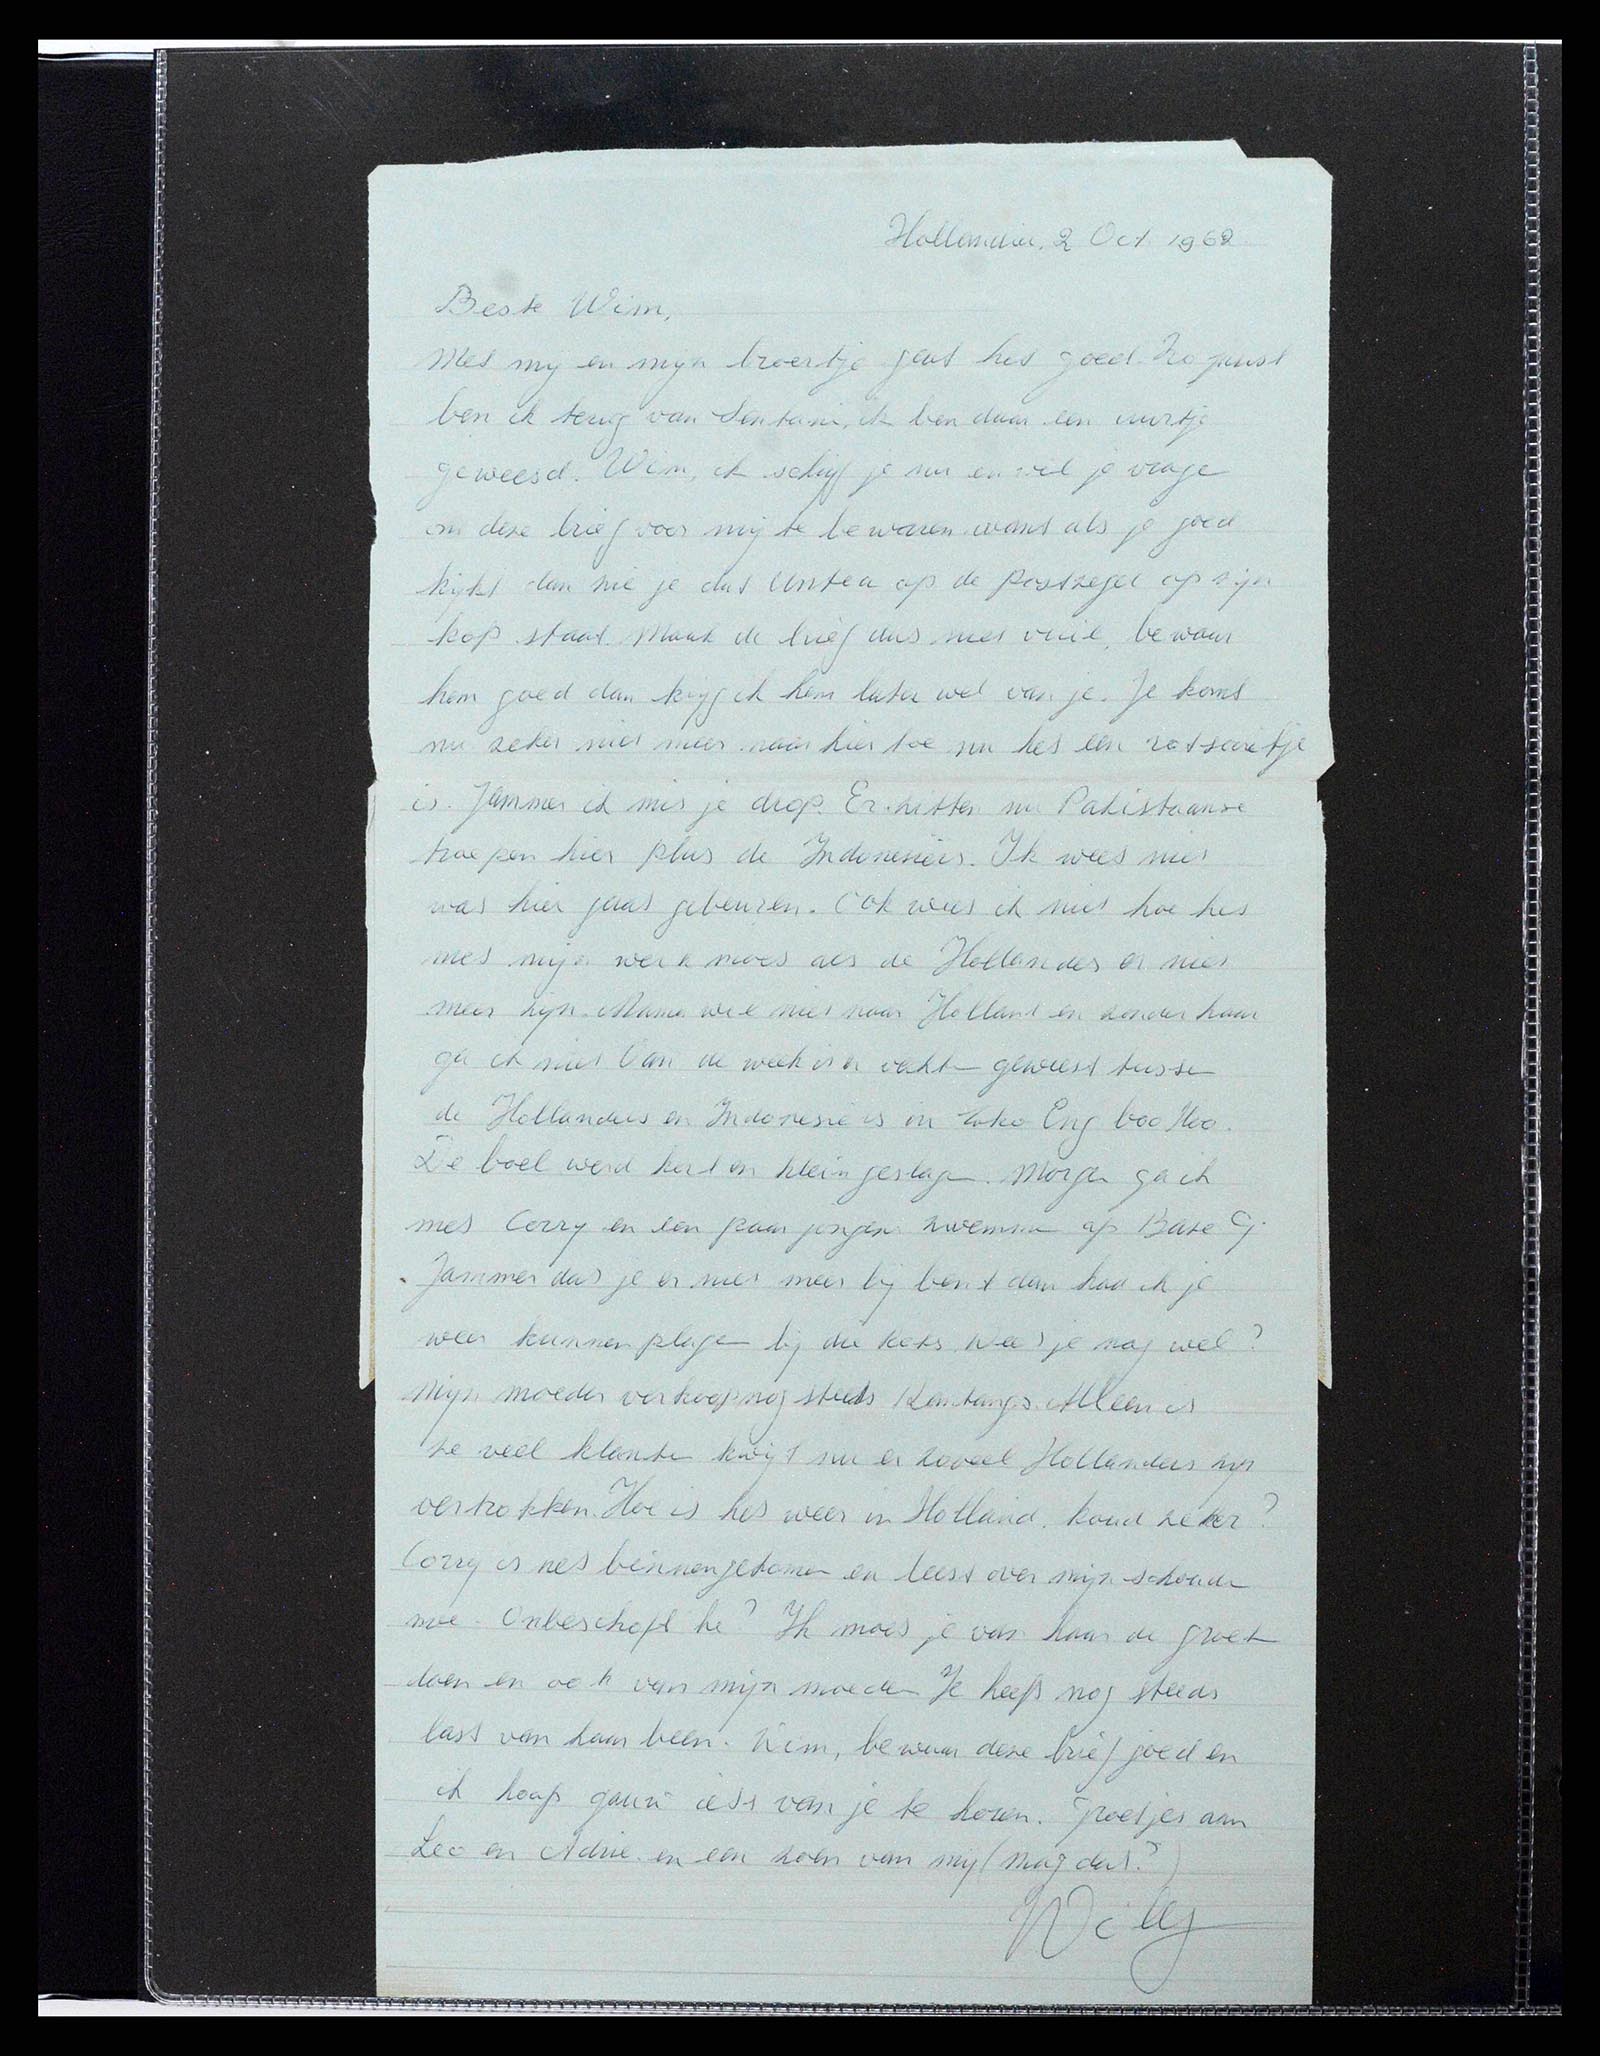 Hollandia, 2 Oct. 1962
Beste Wim,
Met mij en mijn broertje gaat het goed. Zo juist
ben ik terug van Sentani, ik ben daar een uurtje
geweest. Wim, ik schrijf je nu en wil je vrage
om deze brief voor mij te bewaren want als je goed
kijkt dan zie je dat Untea op de postzegel op zijn
kop staat. Maak de brief dus niet vuil, bewaar
hem goed dan krijg ik hem later wel van je. Je komt
nu zeker niet meer naar hier toe nu het een rotzooitje
is. Jammer ik mis je drop. Er zitten nu Pakistaanse
troepen hier plus de Indonesiërs. Ik weet niet
wat hier gaat gebeuren. Ook weet ik niet hoe het
met mijn werk moet als de Hollanders er niet
meer zijn. Mama wil niet naar Holland en zonder haar
ga ik niet. Van de week is er vechten geweest tussen
de Hollanders en Indonesiërs in toko Eng boo Hoo.
De boel werd kort en klein geslagen. Morgen ga ik
met Corry en een paar jongens zwemmen op Base G.
Jammer dat je er niet meer bij bent dan had ik je
weer kunnen plagen bij die weet je nog wel?
Mijn moeder verkoop nog steeds Kentangs. Alleen is
ze veel klanten kwijt nu er zoveel Hollanders zijn
vertrokken. Hoe is het weer in Holland, koud zeker?
Corry is net binnengekomen en leest over mijn schouder
mee. Onbeschoft he? Ik moet je van haar de groeten
doen en ook van mijn moeder. Ze heeft nog steeds
last van haar been. Wim, bewaar deze brief goed en
ik hoop gauw iets van je te horen. Groetjes aan
Leo en Adrie en een zoen van mij (mag dat?)
Willy